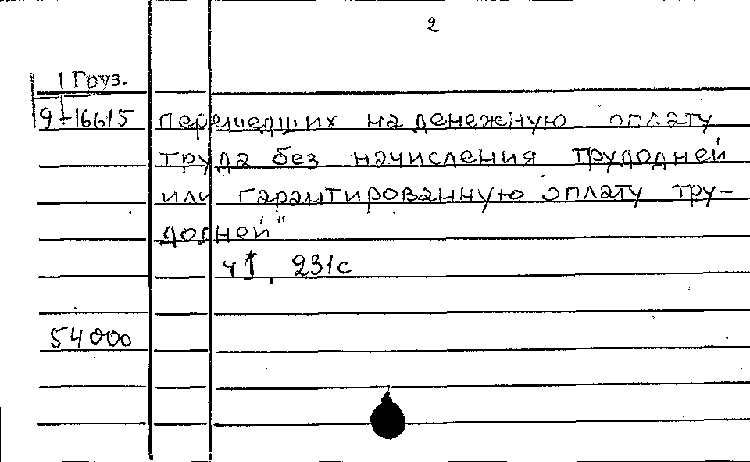 2
1 Груз.
9-16615 перешедших на денежную оплату
труда без начисления трудодней
или гарантированную оплату тру-
додней"
ч I, 231с
54000